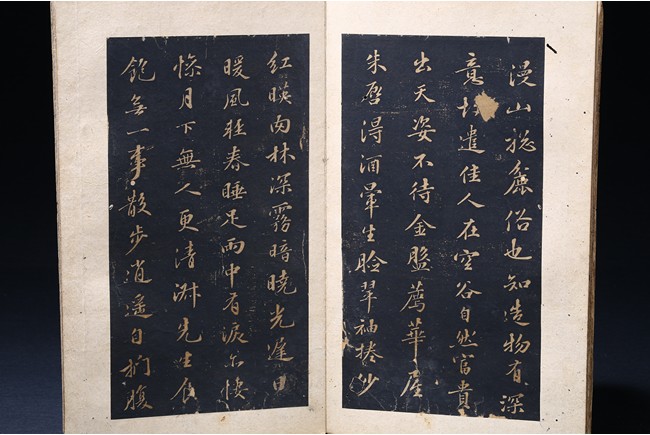 漫山揔麤俗也知造物有深
意故遣佳人在空谷自然富貴
出天姿不待金盤薦華屋
朱唇得酒暈生臉翠袖捲紗
紅暎肉林深霧暗曉光遲日
暖風輕春睡足雨中有淚亦悽
愴月下無人更清淑先生食
飽無一事散步逍遙自捫腹